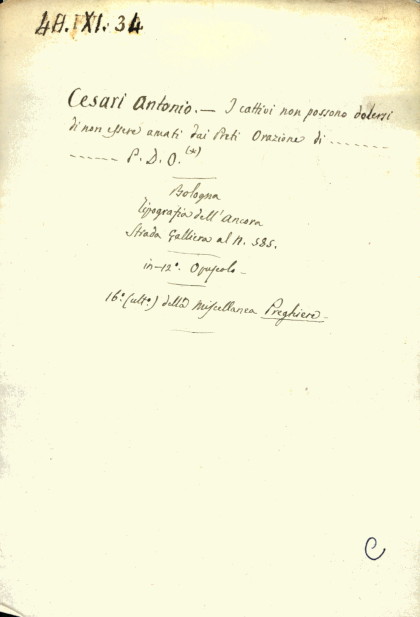 4H. XI. 34
Cesari Antonio. — I cattivi non possono dolersi
di non essere amati dai Preti Orazione di -------
------ P. D. O. (*)
Bologna
Tipografia dell'Ancora
Strada Galliera al N. 585.
in-12°. Opuscolo -
16° (ult°.) della Miscellanea Preghiere -
C